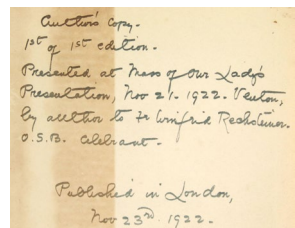 Author's Copy.
1st of 1st edition.
Presented at Mass of Our Lady's
Presentation, Nov 21. 1922. Ventnor,
by author to Fr Winfrid Rechsteiner.
O.S.B. Celebrant.
Published in London,
Nov 23rd. 1922.